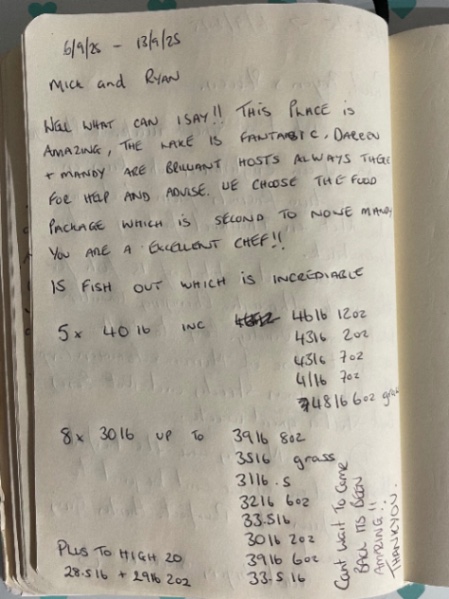 6/9/25 - 13/9/25
MICK and RYAN
WELL WHAT CAN I SAY!! THIS PLACE IS
AMAZING, THE LAKE IS FANTASTIC, DARREN
+ MANDY ARE BRILLIANT HOSTS ALWAYS THERE
FOR HELP AND ADVISE. WE CHOOSE THE FOOD
PACKAGE WHICH IS SECOND TO NONE MANDY
YOU ARE A EXCELLENT CHEF!!
15 FISH OUT WHICH IS INCREDIABLE
5 x 40 lb INC 46lb 12oz
43lb 2oz
43lb 7oz
41lb 7oz
48lb 6oz grass
8 x 30lb UP TO 39lb 8oz
35lb grass
31lb .5
32lb 6oz
33.5lb
30lb 2oz
39lb 6oz
33.5 lb
PLUS TO HIGH 20
28.5lb + 29lb 2oz
Cant Wait To Come
BACK ITS BEEN
AMAZING!!
THANKYOU.